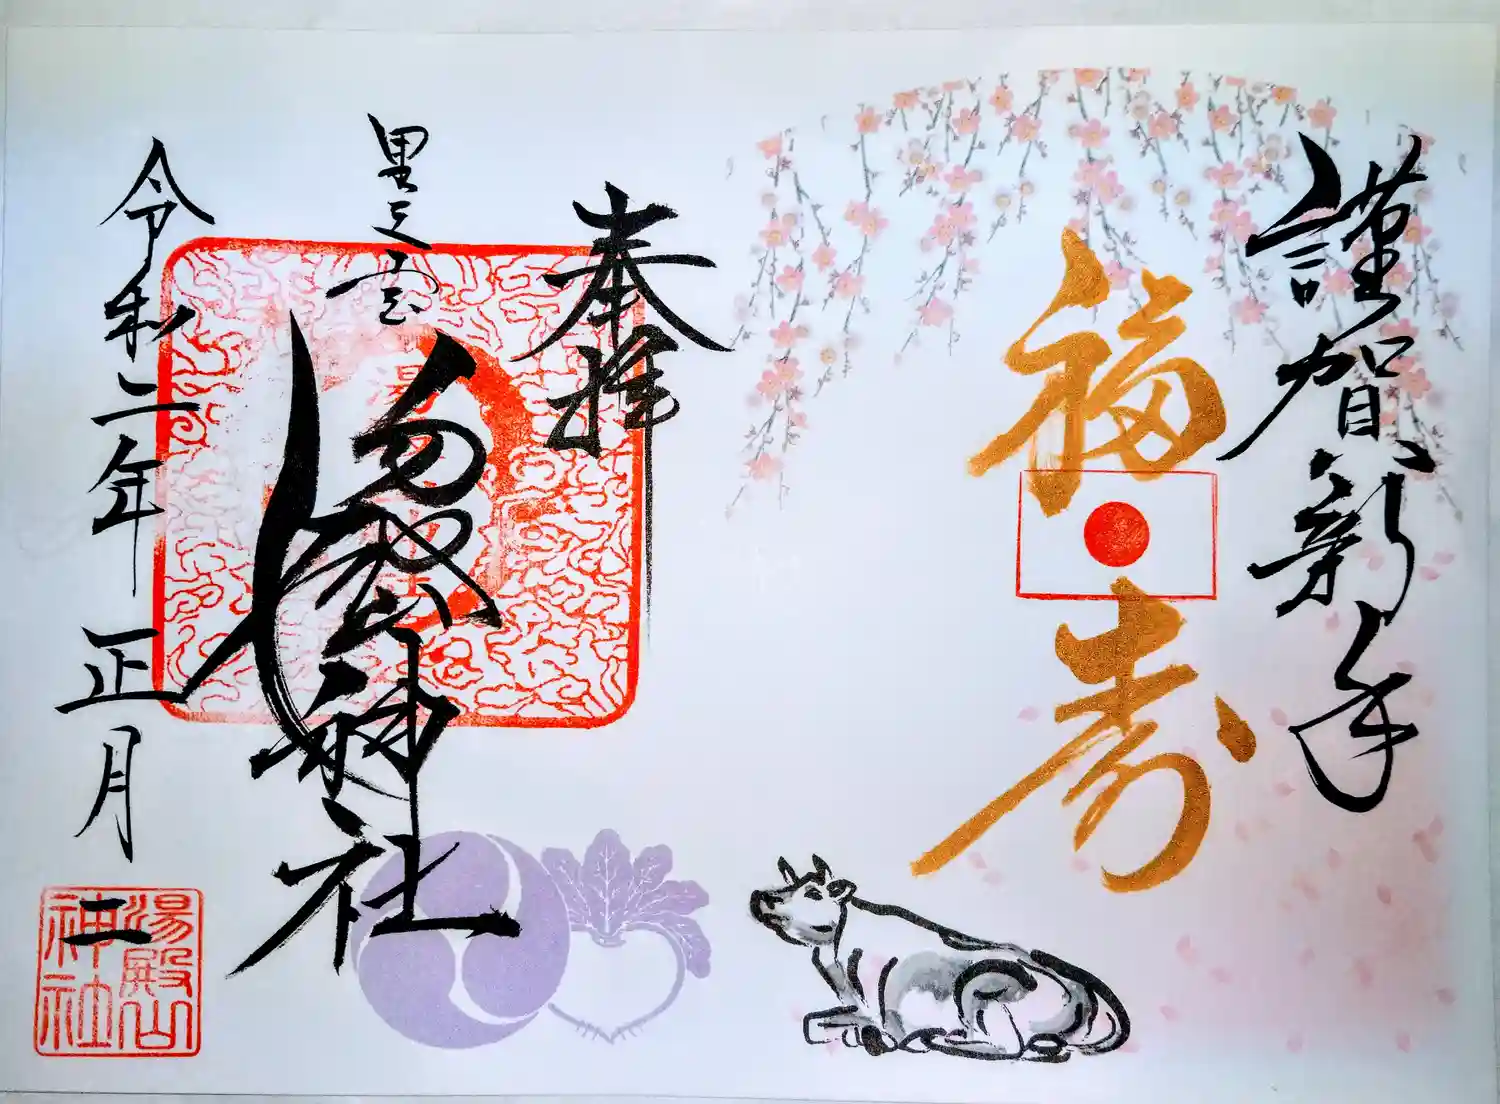 謹賀新年
福寿
奉拝
里之宮
湯殿山神社
令和二年正月二
湯殿山
神社